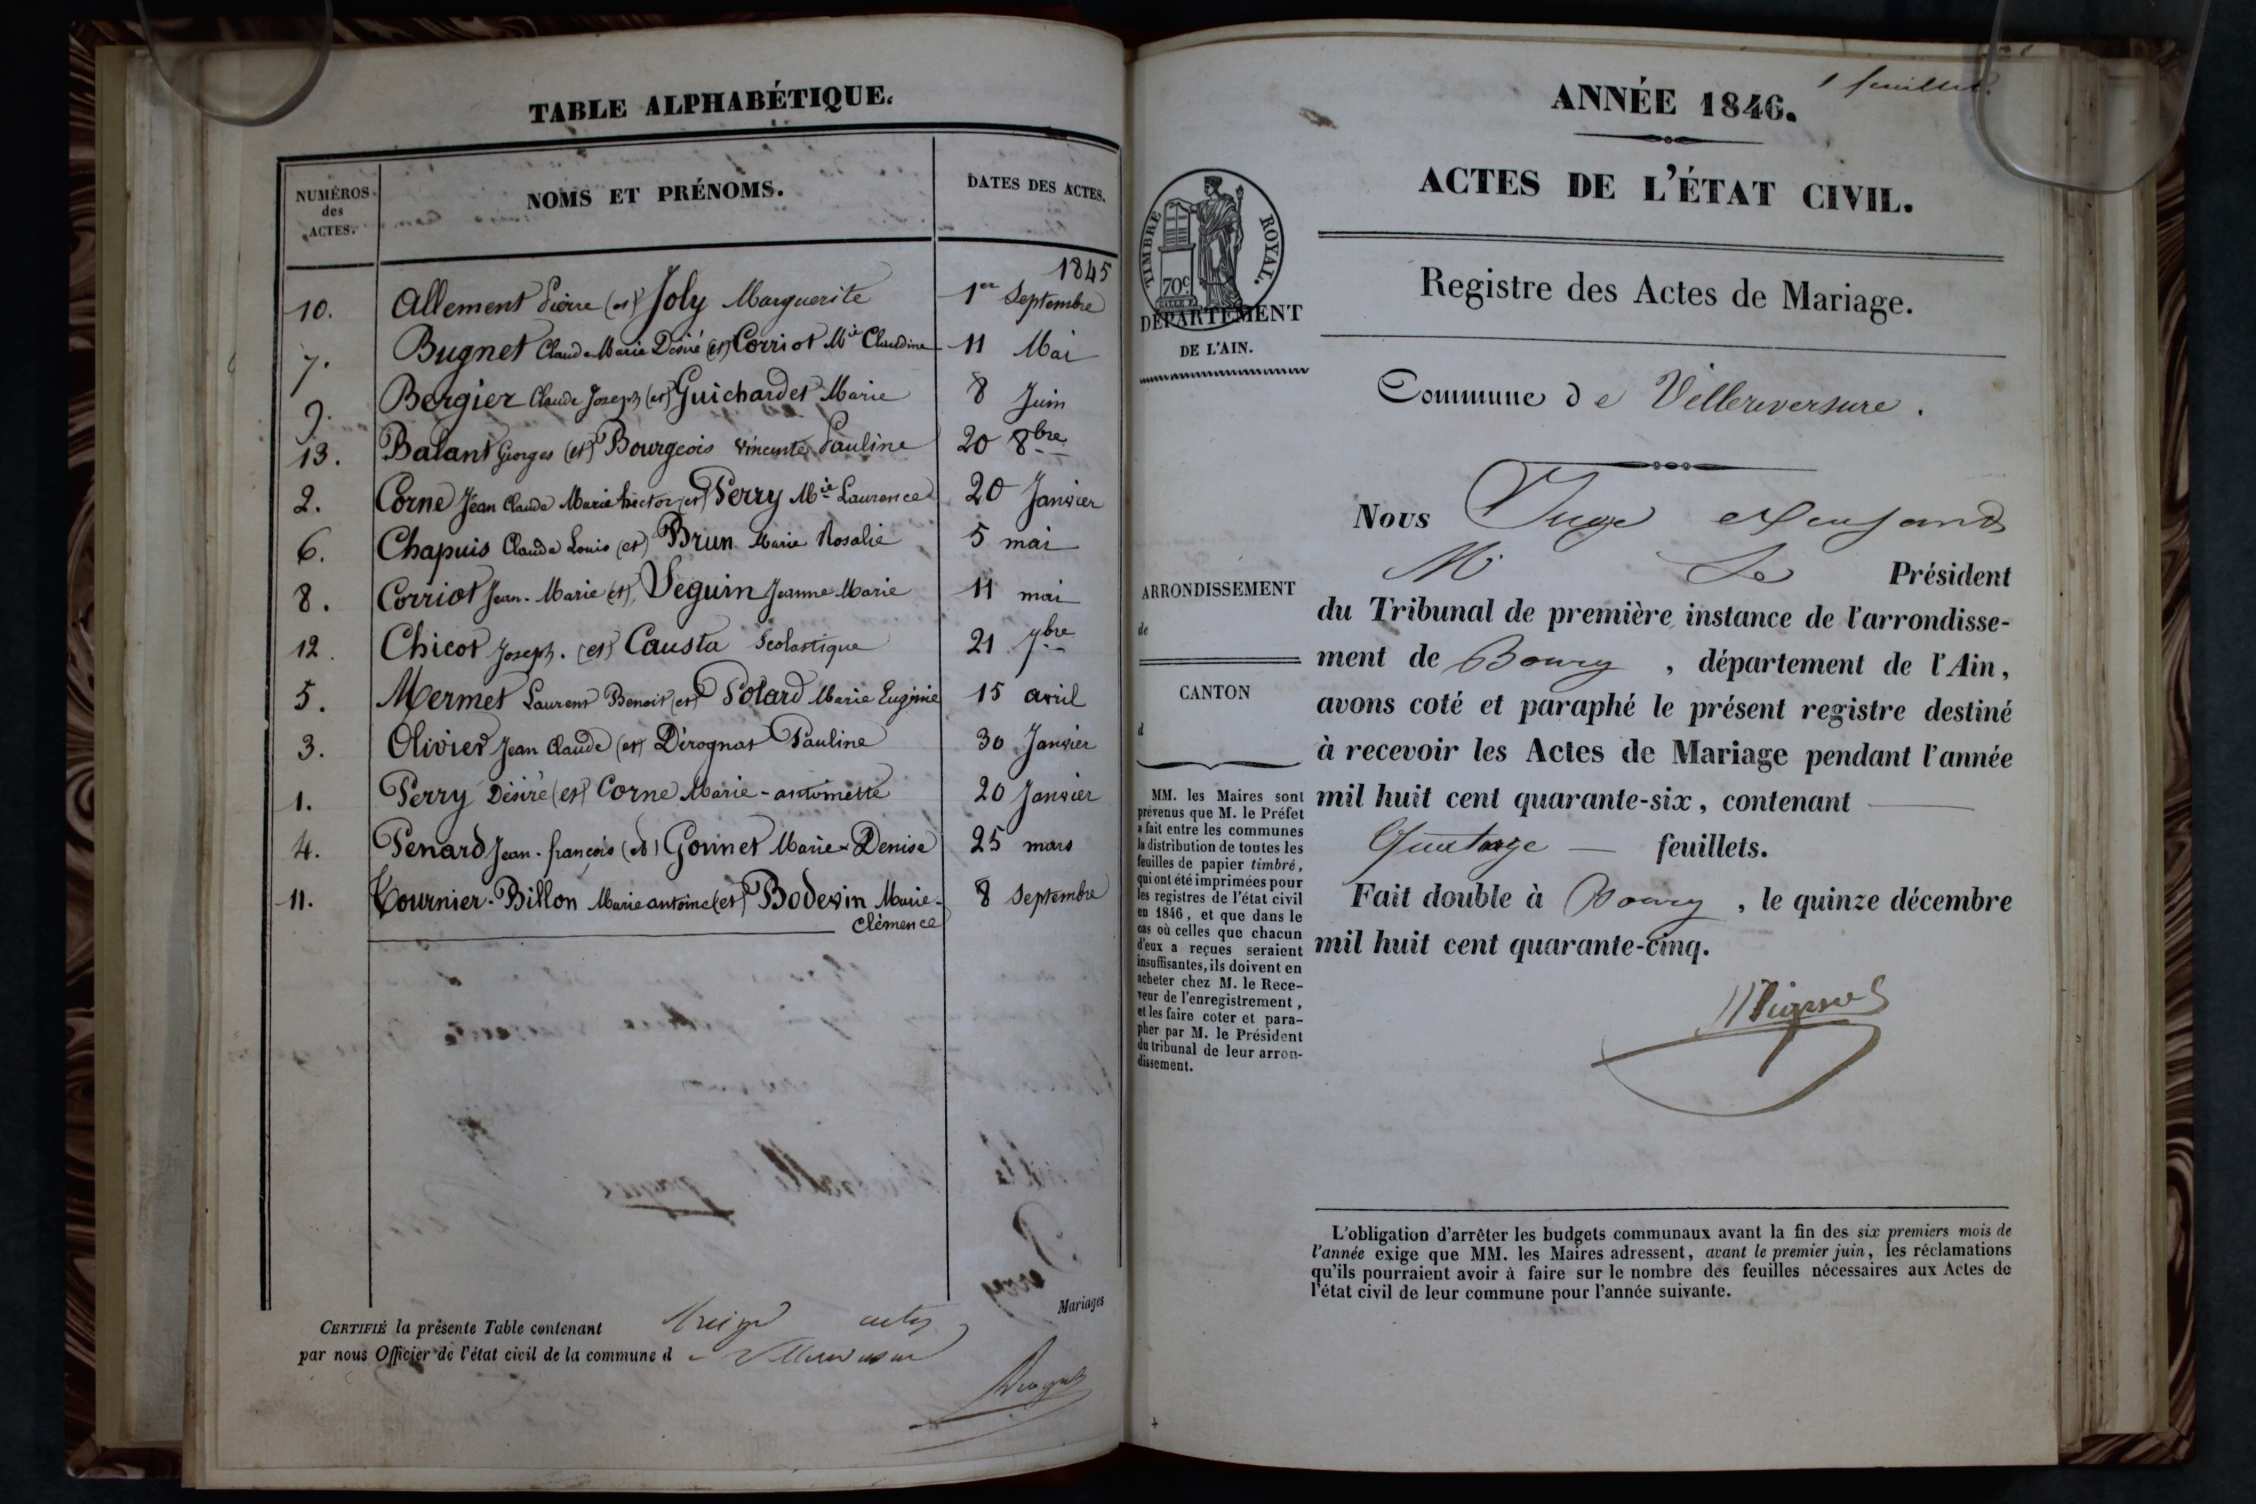 TABLE ALPHABÉTIQUE.
NUMÉROS des ACTES.
NOMS ET PRÉNOMS.
DATES DES ACTES.
1845
10. Allement Pierre (et) Joly Marguerite 1er Septembre
7. Bugnet Claude Marie Désiré (et) Corriot Mie Claudine 11 Mai
9. Bergier Claude Joseph (et) Guichardet Marie 8 Juin
13. Balant Georges (et) Bourgeois Vincente Pauline 20 8bre
2. Corne Jean Claude Marie hector (et) Perry Mie Laurence 20 Janvier
6. Chapuis Claude Louis (et) Brun Marie Rosalie 5 mai
8. Corriot Jean-Marie (et) Seguin Jeanne Marie 11 mai
12. Chicot Joseph. (et) Causta Scolastique 21 7bre
5. Mermet Laurent Benoit (et) Polard Marie Eugénie 15 avril
3. Olivier Jean Claude (et) Dérognat Pauline 30 Janvier
1. Perry Désiré (et) Corne Marie-antoinette 20 Janvier
4. Penard Jean-françois (et) Gonnet Marie-Denise 25 mars
11. Tournier-Billon Marie antoine (et) Bodevin Marie- 8 Septembre
clémence
Mariages
CERTIFIÉ la présente Table contenant treize actes
par nous Officier de l'état civil de la commune de Villereversure
1 feuillet.
ANNÉE 1846.
ACTES DE L'ÉTAT CIVIL.
TIMBRE ROYAL.
70c
DÉPARTEMENT
DE L'AIN.
Registre des Actes de Mariage.
Commune de Villereversure.
ARRONDISSEMENT
de
CANTON
d
MM. les Maires sont
prévenus que M. le Préfet
a fait entre les communes
la distribution de toutes les
feuilles de papier timbré,
qui ont été imprimées pour
les registres de l'état civil
en 1846, et que dans le
cas où celles que chacun
d'eux a reçues seraient
insuffisantes, ils doivent en
acheter chez M. le Rece-
veur de l'enregistrement,
et les faire coter et para-
pher par M. le Président
du tribunal de leur arron-
dissement.
Nous Juge
M. Le Président
du Tribunal de première instance de l'arrondisse-
ment de Bourg, département de l'Ain,
avons coté et paraphé le présent registre destiné
à recevoir les Actes de Mariage pendant l'année
mil huit cent quarante-six, contenant
Quatorze — feuillets.
Fait double à Bourg, le quinze décembre
mil huit cent quarante-cinq.
L'obligation d'arrêter les budgets communaux avant la fin des six premiers mois de
l'année exige que MM. les Maires adressent, avant le premier juin, les réclamations
qu'ils pourraient avoir à faire sur le nombre des feuilles nécessaires aux Actes de
l'état civil de leur commune pour l'année suivante.